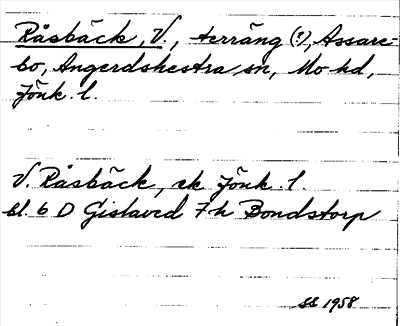 Råsbäck, V., terräng (?), Assare-
bo, Angerdshestra sn, Mo hd,
Jönk. l.
V. Råsbäck, ek Jönk. l.
bl. 6 D Gislaved 7 h Bondstorp
SS 1958